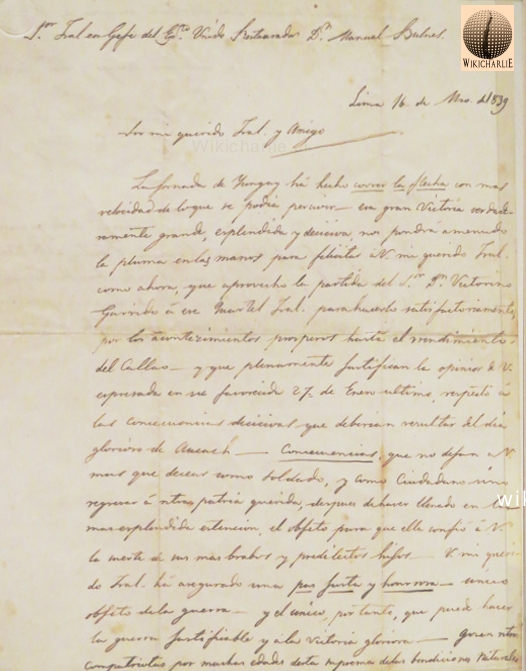 Sor Jral en Gefe del Ejto Unido Restaurador Dn Manuel Bulnes.
WIKICHARLIE
Lima 16 de Mzo. de 1839
Sor mi querido Jral. y Amigo
Wikicharlie
La Jornada de Yungay há hecho correr la flecha con mas
velocidad de lo que se podia percivir — esa gran Victoria verdade-
ramente grande, esplendida y decisiva nos pondrá amenudo
la pluma en las manos para felicitar á V. mi querido Jral.
como ahora, que aprovecho la partida del Sor Dn Victorino
Garrido á ese Cuartel Jral. para hacerlo satisfactoriamente
por los acontecimientos prosperos hasta el rendimiento
del Callao — y que plenamente justifican la opinion de V.
espresada en su favorecida 27 de Enero ultimo, respecto á
las consecuencias decisivas que deberian resultar del dia
glorioso de Ancach — Consecuencias, que no dejan á V.
mas que desear como Soldado, y como Ciudadano sino
regresar á ntra patria querida, despues de haver llenado en la
mas esplendida estencion, el objeto para que ella confió á V.
la suerte de sus mas brabos y predilectos hijos — V. mi queri-
do Jral. há asegurado una paz justa y honrosa — unico
objeto de la guerra — y el unico, por tanto, que puede hacer
la guerra justificable y á la Victoria gloriosa — gozen ntros
compatriotas por muchas edades desta suprema de las bendiciones